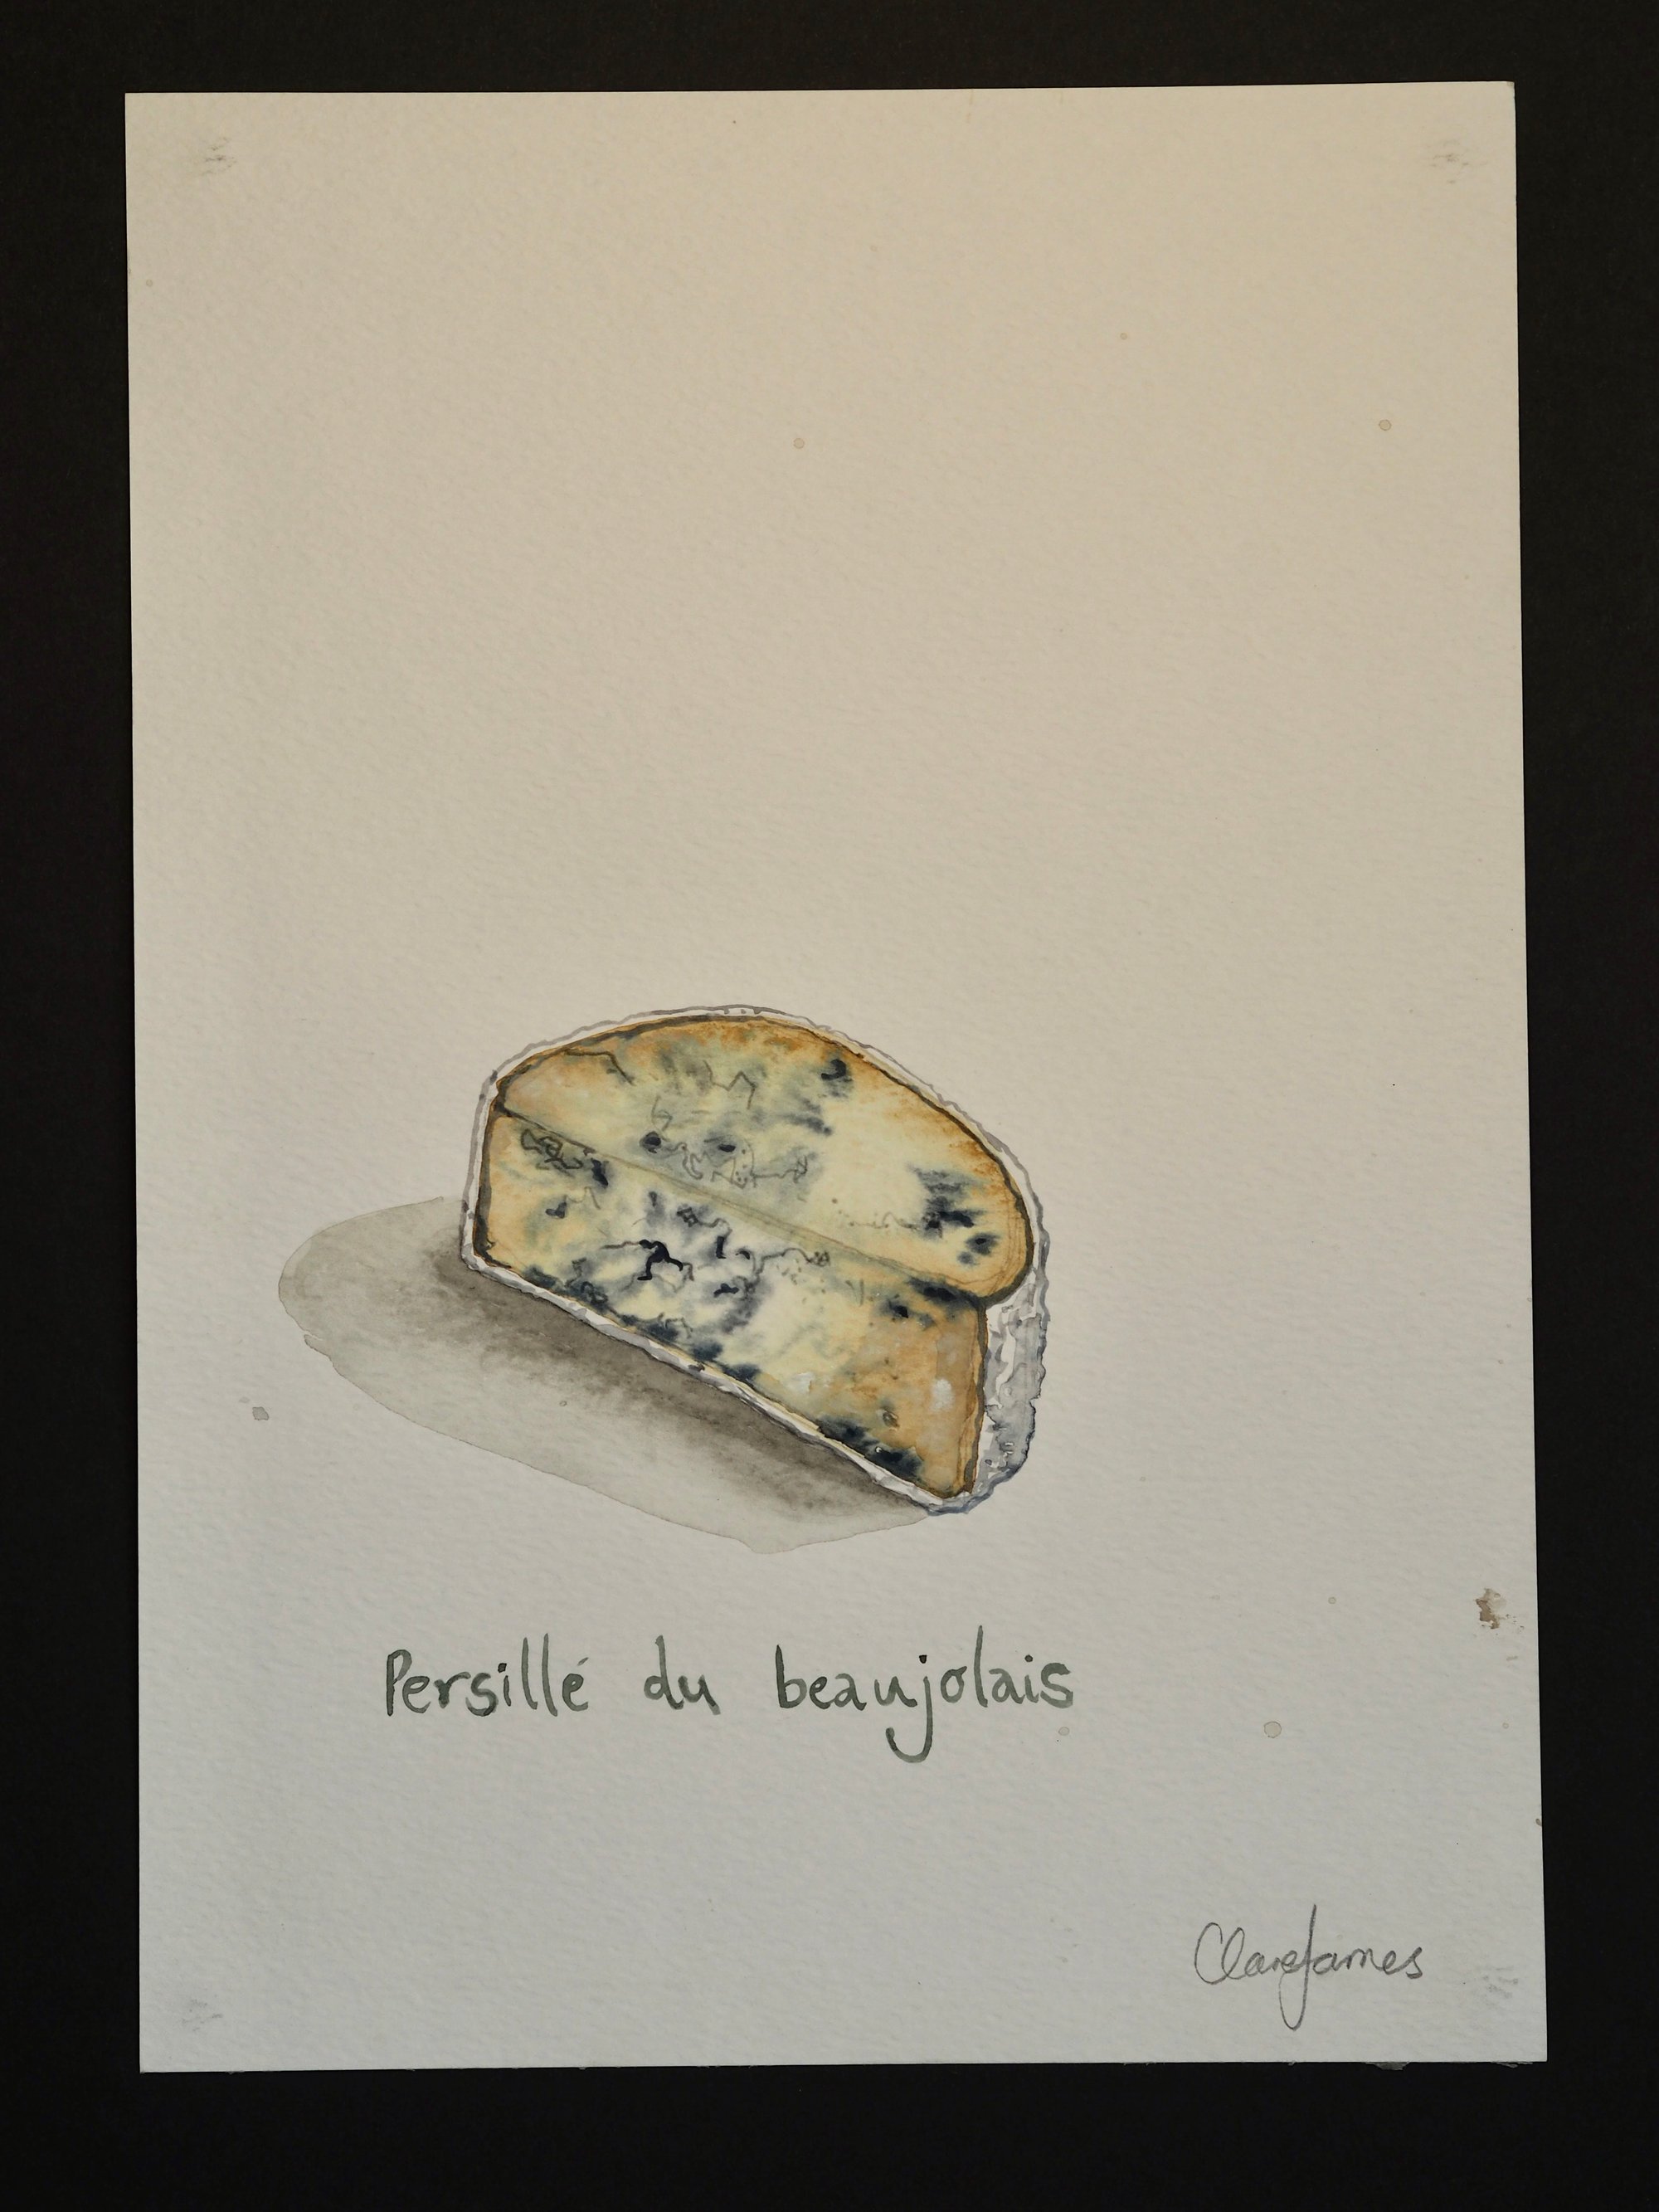 Persillé du beaujolais
Clare James